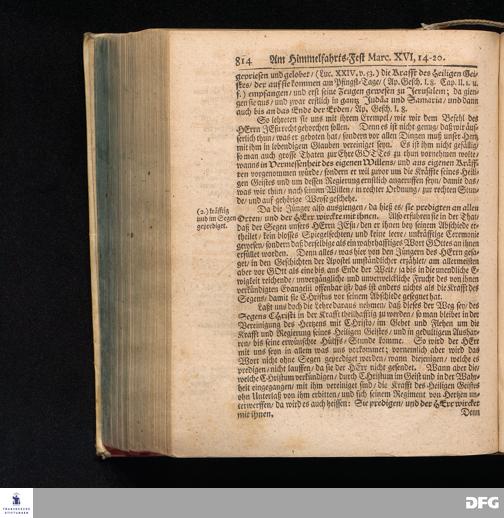 814 Am Himmelfahrts-Fest Marc. XVI, 14-20.
gepriesen und gelobet/ (Luc. XXIV, v. 53.) die Krafft des Heiligen Gei-
stes/ der auf sie kommen am Pfingst-Tage/ (Ap. Gesch. I, 8. Cap. II, 1. u.
f.) empfangen/ und erst seine Zeugen gewesen zu Jerusalem; da gien-
gen sie aus/ und zwar erstlich in gantz Judäa und Samaria/ und dann
auch bis an das Ende der Erden/ Ap. Gesch. I, 8.
So lehreten sie uns mit ihrem Exempel/ wie wir dem Befehl des
HErrn JEsu recht gehorchen sollen. Denn es ist nicht genug/ daß wir äus-
serlich thun/ was er geboten hat/ sondern vor allen Dingen muß unser Hertz
mit ihm in lebendigem Glauben vereiniget seyn. Es ist ihm nicht gefällig/
so man auch grosse Thaten zur Ehre GOTTes zu thun vornehmen wolte/
wanns in Vermessenheit des eigenen Willens/ und aus eigenen Kräff-
ten vorgenommen würde/ sondern er will zuvor um die Kräffte seines Heili-
gen Geistes und um dessen Regierung ernstlich angeruffen seyn/ damit das/
was wir thun/ nach seinem Willen/ in rechter Ordnung/ zur rechten Stun-
de/ und auf gehörige Weyse geschehe.
(2.) kräfftig
und im Segen
geprediget.
Da die Jünger also ausgiengen/ da hieß es/ sie predigten an allen
Orten/ und der HErr wirckte mit ihnen. Also erfuhren sie in der That/
daß der Segen unsers HErrn JEsu/ den er ihnen bey seinem Abschiede er-
theilet/ kein blosses Spiegelfechten/ und keine leere/ unkräfftige Ceremonie
gewesen/ sondern daß derselbige als ein wahrhafftiges Wort GOttes an ihnen
erfüllet worden. Denn alles/ was hier von den Jüngern des HErrn gesa-
get/ in den Geschichten der Apostel umständlicher erzählet/ am allermeisten
aber vor GOtt als eine bis ans Ende der Welt/ ja bis in die unendliche E-
wigkeit reichende/ unvergängliche und unverwelckliche Frucht des von ihnen
verkündigten Evangelii offenbar ist/ das ist anders nichts als die Krafft des
Segens/ damit sie CHristus vor seinem Abschiede gesegnet hat.
Laßt uns doch die Lehre daraus nehmen/ daß dieses der Weg sey/ des
Segens CHristi in der Krafft theilhafftig zu werden/ so man bleibet in der
Vereinigung des Hertzens mit CHristo/ im Gebet und Flehen um die
Krafft und Regierung seines Heiligen Geistes/ und in gedultigem Aushar-
ren/ bis seine erwünschte Hülffs-Stunde komme. So wird der HErr
mit uns seyn in allem was uns vorkommet; vornemlich aber wird das
Wort nicht ohne Segen geprediget werden/ wann diejenigen/ welche es
predigen/ nicht lauffen/ da sie der HErr nicht gesendet. Wann aber die/
welche CHristum verkündigen/ durch CHristum im Geist und in der Wahr-
heit eingegangen/ mit ihm vereiniget sind/ die Krafft des Heiligen Geistes
ohn Unterlaß von ihm erbitten/ und sich seinem Regiment von Hertzen un-
terwerffen/ da wird es auch heissen: Sie predigen/ und der HErr wircket
mit ihnen.
Denn
FRANCKESCHE
STIFTUNGEN
DFG